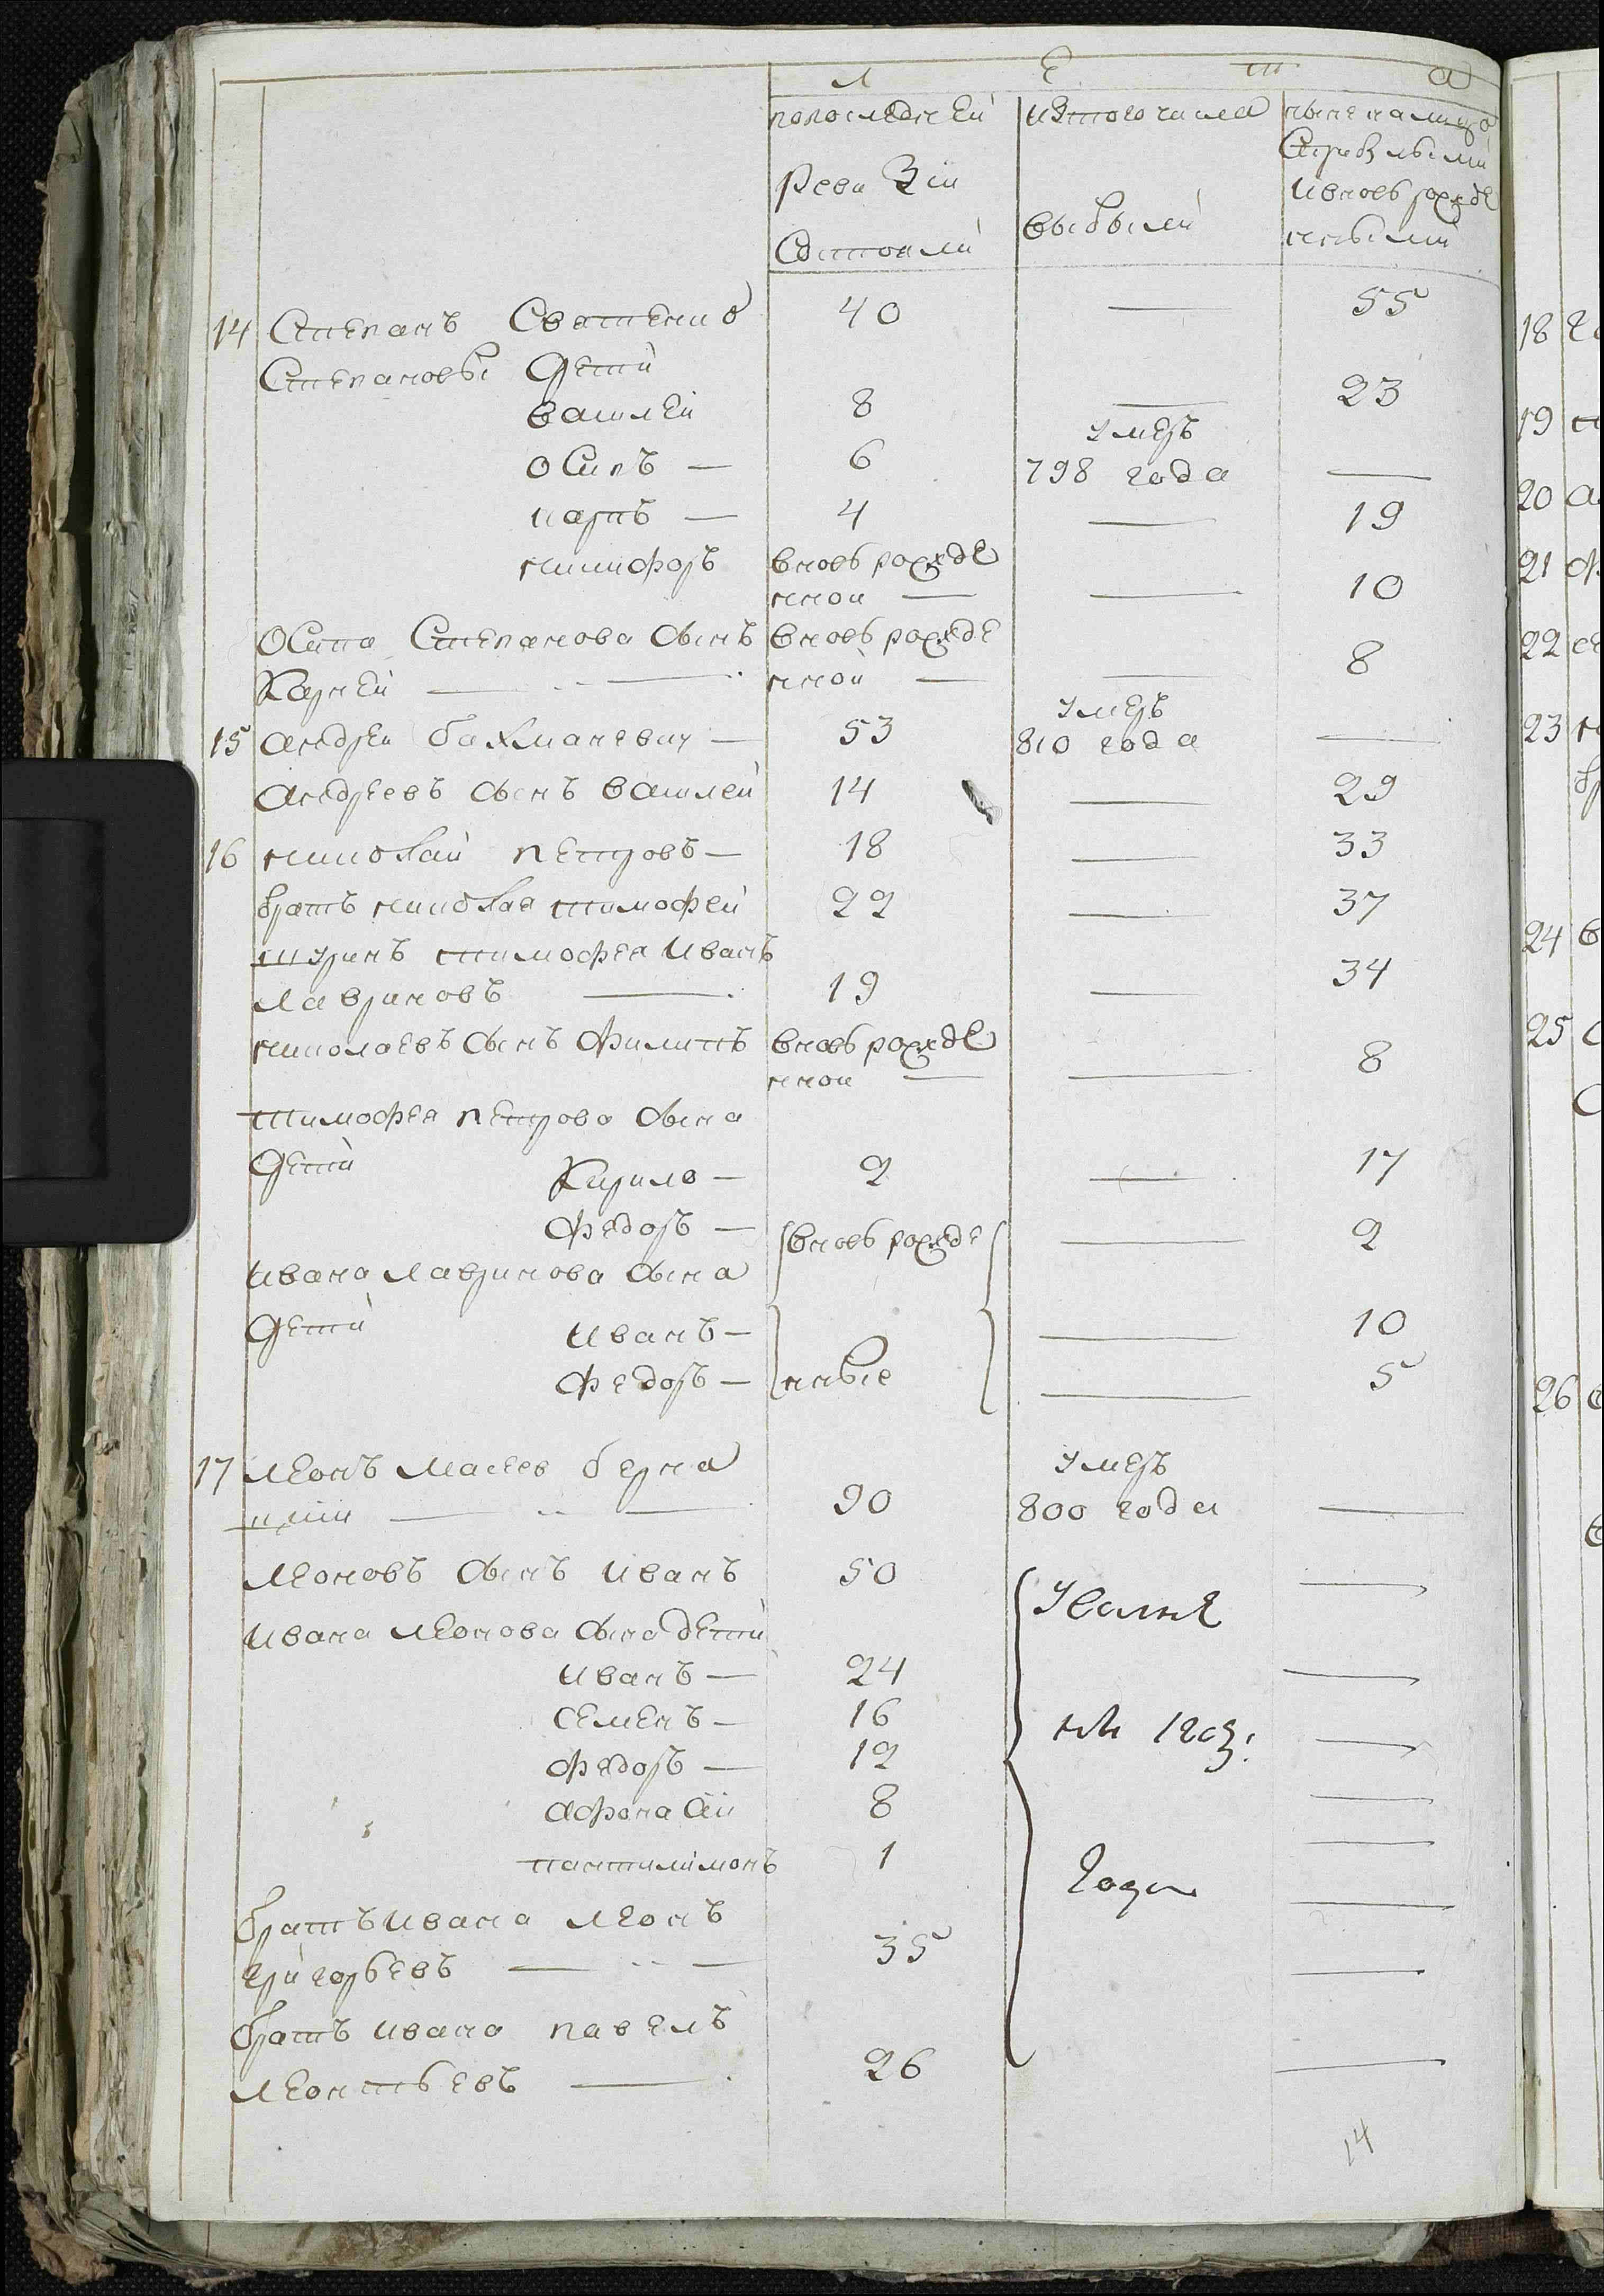 Л Е Т А
попоследней изтого числа ныне налицо
Ревизiи выбыли Сприбылыми
Состояли ивновь рожде
нными
14 Степанъ Святенко 40 — 55
Степановы Дети
василей 8 — 23
умеръ
осипъ — 6 798 года —
карпъ — 4 — 19
никифоръ вновь рожде
нной — — 10
Осипа Степанова сынъ вновь рожде
Карней — нной — — 8
умеръ
15 андрей бахманевич — 53 810 года —
андреевъ сынъ василей 14 — 29
16 николай петровъ — 18 — 33
братъ николая тимофей 22 — 37
шуринъ тимофея иванъ
лавриновъ — 19 — 34
николаевъ сынъ филипъ вновь рожде
нной — — 8
тимофея петрова сына
Дети Кирило — 2 — 17
федоръ — вновь рожде — 2
ивана лавринова сына
Дети иванъ — — 10
федоръ — нные — 5
умеръ
17 леонъ берна
90 800 года —
леоновъ сынъ иванъ 50 —
ивана леонова сына дети
иванъ — 24 —
семенъ — 16 —
федоръ — 12 —
афонасiй 8 —
пантилимонъ 1 года —
братъ ивана леонъ
григорьевъ — 35 —
братъ ивана павелъ
леонтьевъ — 26 —
14
18
19
20
21
22
23
24
25
26